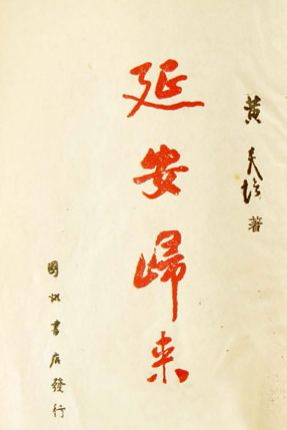 黄炎培 著
延安歸来
國訊書店發行